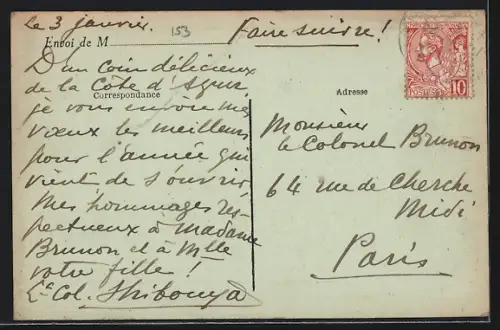 Le 3 janvier.
153
Faire suivre!
Envoi de M
D'un coin délicieux
de la Côte d'Azur,
Correspondance
je vous envoie mes
vœux les meilleurs
pour l'année qui
vient de s'ouvrir,
Mes hommages res-
pectueux à Madame
Brunon et à Mlle
votre fille!
Lt Col. Shibouya
Adresse
10
Monsieur
le Colonel Brunon
64 rue de Cherche
Midi
Paris